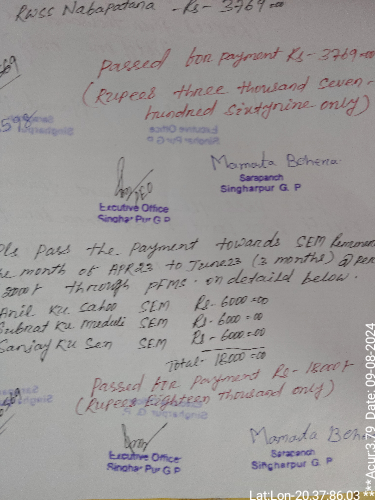 RWSS Nabapatana - Rs- 3769=00
Passed for payment Rs- 3769=00
(Rupees three thousand seven-
hundred sixtynine only)
Mamata Behera
Sarapanch
Singharpur G. P
Executive Office
Singhar Pur G P
Pls pass the payment towards SEM
month of APR23 to June23 (3 months) @
through PFMS. on detailed below.
Anil Ku Sahoo SEM Rs- 6000=00
Ku Muduli SEM Rs- 6000=00
Sanjay Ku Sen SEM Rs- 6000=00
Total- 18000=00
Passed for payment Rs- 18000/-
(Rupees Eighteen thousand only)
Mamata Behe
Sarapanch
Singharpur G. P
Executive Office
Singhar Pur G P
Lat:Lon-20.37:86.03
***Acur:3.79 Date: 09-08-2024